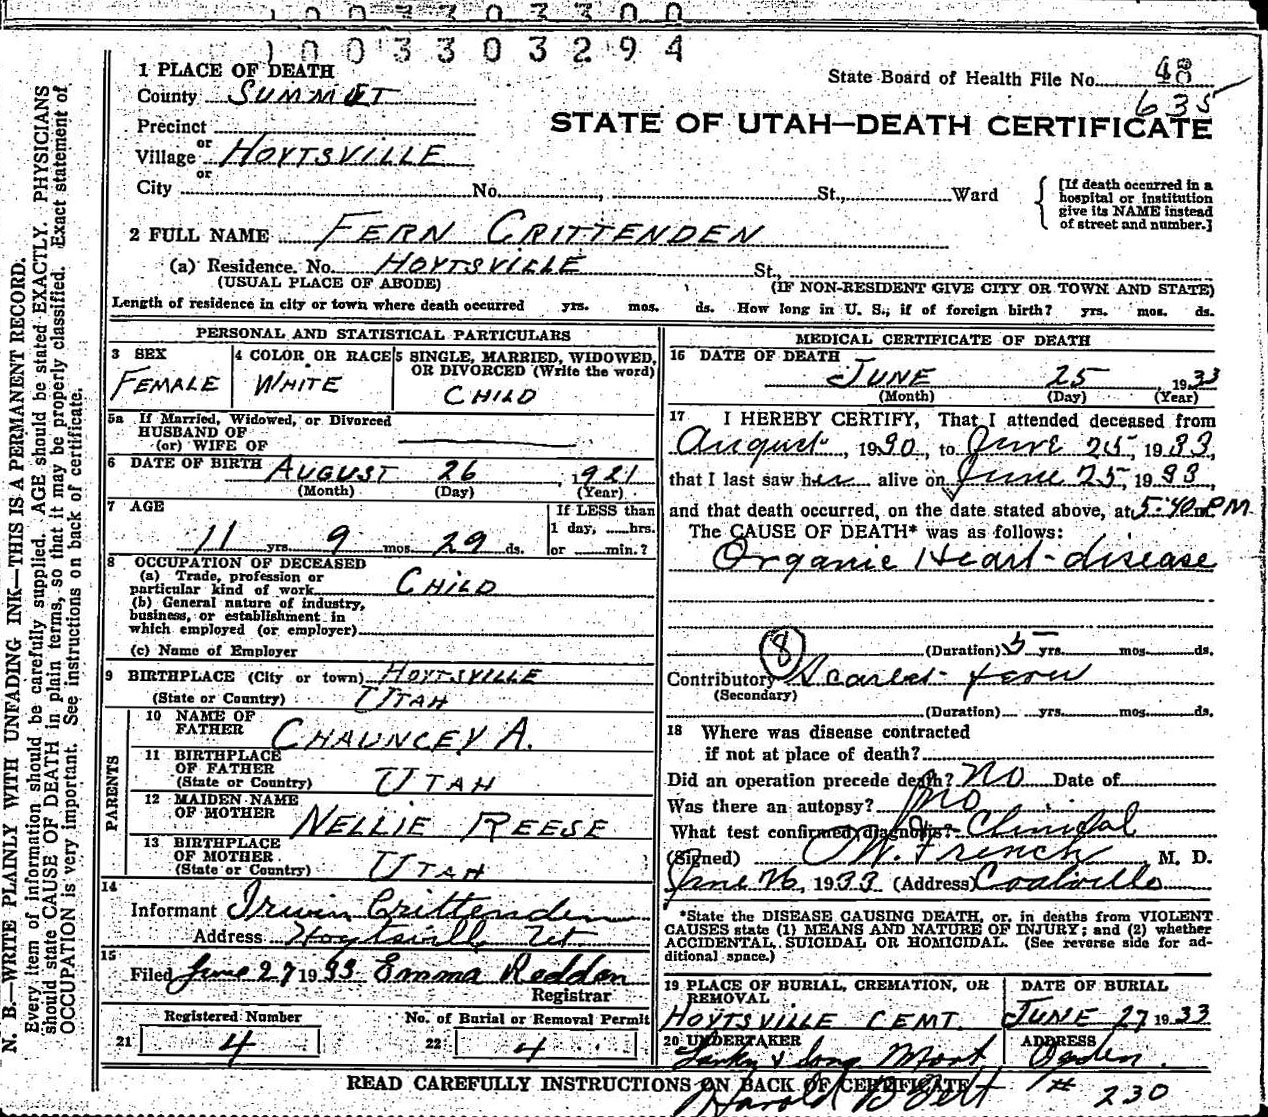 1003303294
1 PLACE OF DEATH
State Board of Health File No. 48
County SUMMIT
635
Precinct
or
STATE OF UTAH—DEATH CERTIFICATE
Village HOYTSVILLE
or
City No. , St., Ward
[If death occurred in a hospital or institution give its NAME instead of street and number.]
2 FULL NAME FERN CRITTENDEN
(a) Residence. No. HOYTSVILLE St.,
(USUAL PLACE OF ABODE) (IF NON-RESIDENT GIVE CITY OR TOWN AND STATE)
Length of residence in city or town where death occurred yrs. mos. ds. How long in U. S., if of foreign birth? yrs. mos. ds.
PERSONAL AND STATISTICAL PARTICULARS
3 SEX
FEMALE
4 COLOR OR RACE
WHITE
5 SINGLE, MARRIED, WIDOWED,
OR DIVORCED (Write the word)
CHILD
5a If Married, Widowed, or Divorced
HUSBAND OF
(or) WIFE OF
6 DATE OF BIRTH AUGUST 26, 1921
(Month) (Day) (Year)
7 AGE
11 yrs. 9 mos. 29 ds.
If LESS than
1 day, ......hrs.
or ......min.?
8 OCCUPATION OF DECEASED
(a) Trade, profession or
particular kind of work CHILD
(b) General nature of industry,
business, or establishment in
which employed (or employer)
(c) Name of Employer
9 BIRTHPLACE (City or town) HOYTSVILLE
(State or Country) UTAH
PARENTS
10 NAME OF
FATHER CHAUNCEY A.
11 BIRTHPLACE
OF FATHER
(State or Country) UTAH
12 MAIDEN NAME
OF MOTHER NELLIE REESE
13 BIRTHPLACE
OF MOTHER
(State or Country) UTAH
14
Informant Irwin Crittenden
Address Hoytsville Ut
15
Filed June 27 1933 Emma Redden
Registrar
Registered Number No. of Burial or Removal Permit
21 4 22 4
MEDICAL CERTIFICATE OF DEATH
16 DATE OF DEATH
JUNE 25, 1933
(Month) (Day) (Year)
17 I HEREBY CERTIFY, That I attended deceased from
August, 1930, to June 25, 1933,
that I last saw her alive on June 25, 1933,
and that death occurred, on the date stated above, at 5:40 P.M.
The CAUSE OF DEATH* was as follows:
Organic Heart-disease
(Duration) 5 yrs. mos. ds.
8
Contributory Scarlet-fever
(Secondary)
(Duration) yrs. mos. ds.
18 Where was disease contracted
if not at place of death?
Did an operation precede death? No Date of
Was there an autopsy? No
What test confirmed diagnosis? Clinical
(Signed) French M. D.
June 26, 1933 (Address) Coalville
*State the DISEASE CAUSING DEATH, or, in deaths from VIOLENT
CAUSES state (1) MEANS AND NATURE OF INJURY; and (2) whether
ACCIDENTAL, SUICIDAL OR HOMICIDAL. (See reverse side for ad-
ditional space.)
19 PLACE OF BURIAL, CREMATION, OR
REMOVAL
HOYTSVILLE CEMT.
DATE OF BURIAL
JUNE 27 1933
20 UNDERTAKER
& Sons Mort
ADDRESS
Ogden.
READ CAREFULLY INSTRUCTIONS ON BACK OF CERTIFICATE
Harold # 230
N. B.—WRITE PLAINLY WITH UNFADING INK—THIS IS A PERMANENT RECORD.
Every item of information should be carefully supplied. AGE should be stated EXACTLY. PHYSICIANS
should state CAUSE OF DEATH in plain terms, so that it may be properly classified. Exact statement of
OCCUPATION is very important. See instructions on back of certificate.